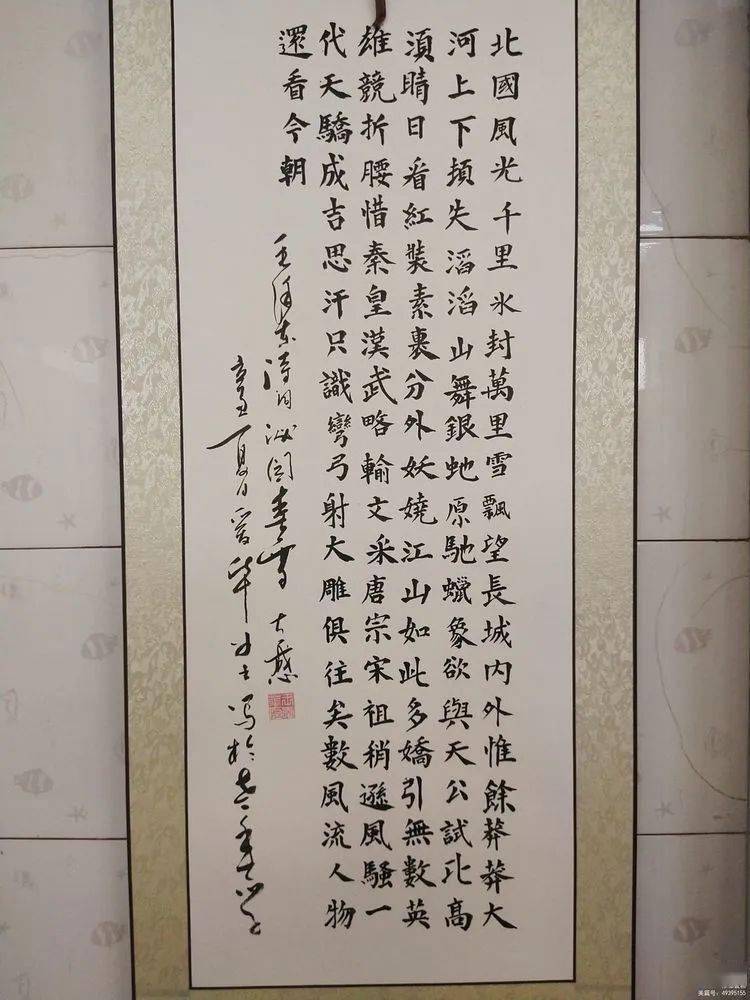 北國風光千里氷封萬里雪飄望長城内外惟餘莽莽大
河上下頓失滔滔山舞銀虵原馳蠟象欲與天公試比高
須晴日看紅裝素裹分外妖嬈江山如此多嬌引無數英
雄競折腰惜秦皇漢武略輸文采唐宗宋祖稍遜風騷一
代天驕成吉思汗只識彎弓射大雕俱往矣數風流人物
還看今朝
毛泽东诗词沁园春雪
辛丑夏日
美篇号：49395155